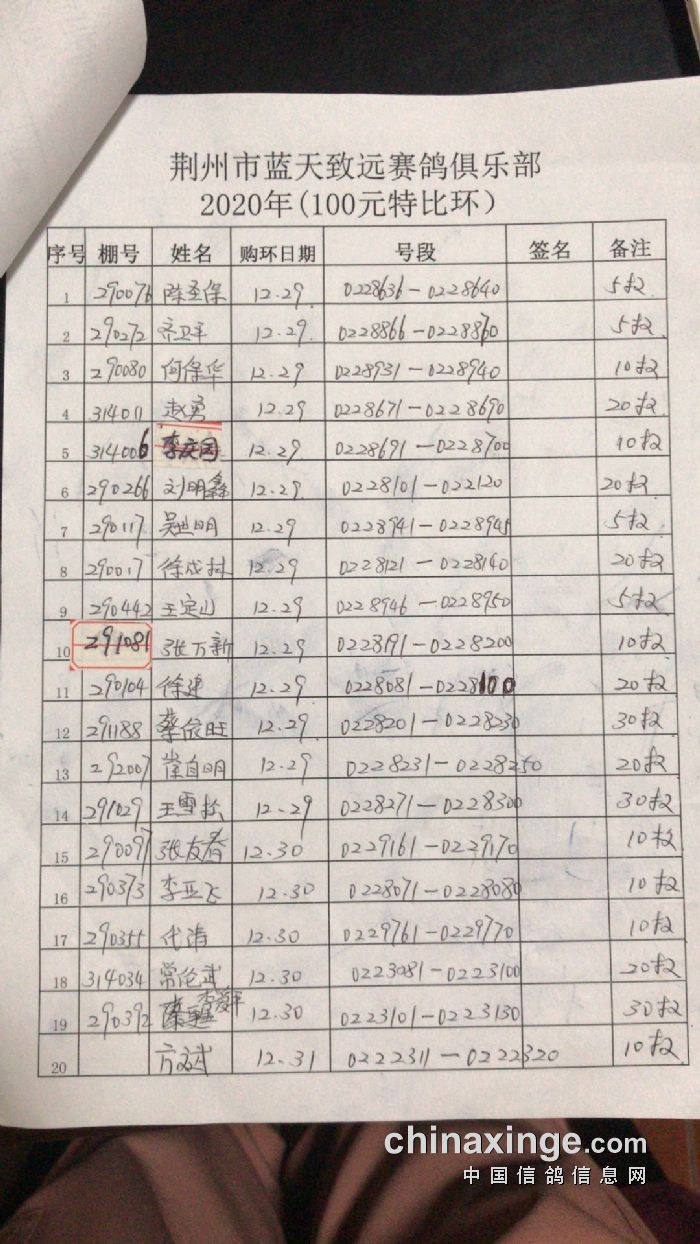 荆州市蓝天致远赛鸽俱乐部
2020年(100元特比环)
序号 棚号 姓名 购环日期 号段 签名 备注
1 290076 陈圣保 12.29 0228636-0228640 5枚
2 290272 齐卫平 12.29 0228866-0228860 5枚
3 290080 何保华 12.29 0228931-0228940 10枚
4 314011 赵勇 12.29 0228671-0228690 20枚
5 314006 李庆国 12.29 0228691-0228700 10枚
6 290266 刘明鑫 12.29 0228101-022120 20枚
7 290117 12.29 0228941-0228945 5枚
8 290017 徐成林 12.29 0228121-0228140 20枚
9 290442 王定山 12.29 0228946-0228950 5枚
10 291081 张万新 12.29 0228191-0228200 10枚
11 290104 徐建 12.29 0228081-0228100 20枚
12 291188 蔡依旺 12.29 0228201-0228230 30枚
13 292007 崔自明 12.29 0228231-0228250 20枚
14 291029 王雪松 12.29 0228271-0228300 30枚
15 290097 张友春 12.30 0229161-0229170 10枚
16 290373 李亚飞 12.30 0228071-0228080 10枚
17 290355 代涛 12.30 0229761-0229770 10枚
18 314034 常伦武 12.30 0223081-0223100 20枚
19 290392 12.30 0223101-0223130 30枚
20 方斌 12.31 0222311-0222320 10枚
chinaxinge.com
中国信鸽信息网